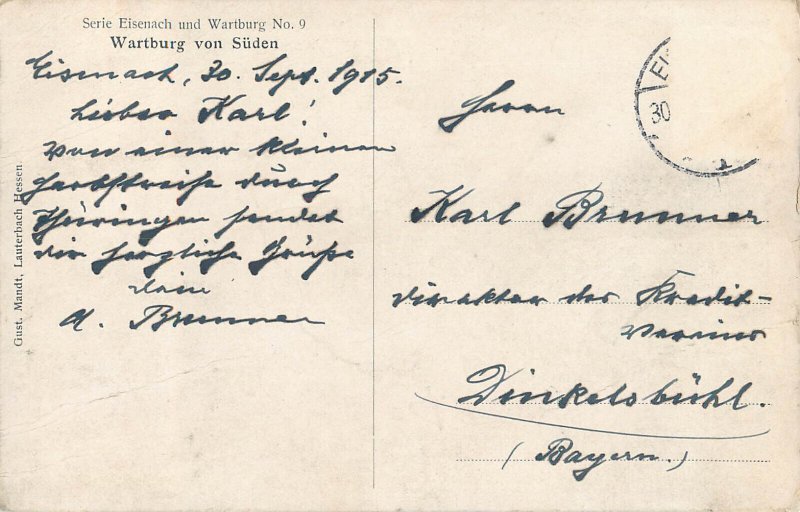 Serie Eisenach und Wartburg No. 9
Wartburg von Süden
Eisenach, 30. Sept. 1915.
Lieber Karl!
Von einer kleinen
Herbstreise durch
Thüringen sendet
dir herzliche Grüße
dein
A. Brunner
Gust. Mandt, Lauterbach Hessen
Herrn
Karl Brunner
Direktor des Kredit-
vereins
Dinkelsbühl.
(Bayern.)
30